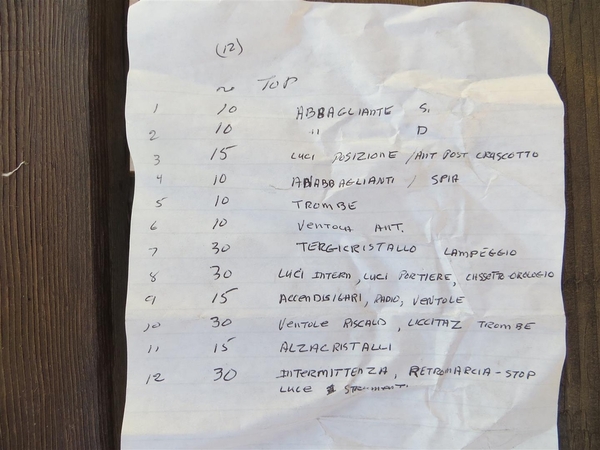 (12)
~ TOP
1 10 ABBAGLIANTE S.
2 10 " D
3 15 LUCI POSIZIONE / ANT POST CRUSCOTTO
4 10 ANABBAGLIANTI / SPIA
5 10 TROMBE
6 10 VENTOLA ANT.
7 30 TERGICRISTALLO LAMPEGGIO
8 30 LUCI INTERN, LUCI PORTIERE, CASSETTO-OROLOGIO
9 15 ACCENDISIGARI, RADIO, VENTOLE
10 30 VENTOLE RISCALD, TROMBE
11 15 ALZACRISTALLI
12 30 INTERMITTENZA, RETROMARCIA-STOP
LUCE STRUMENTI